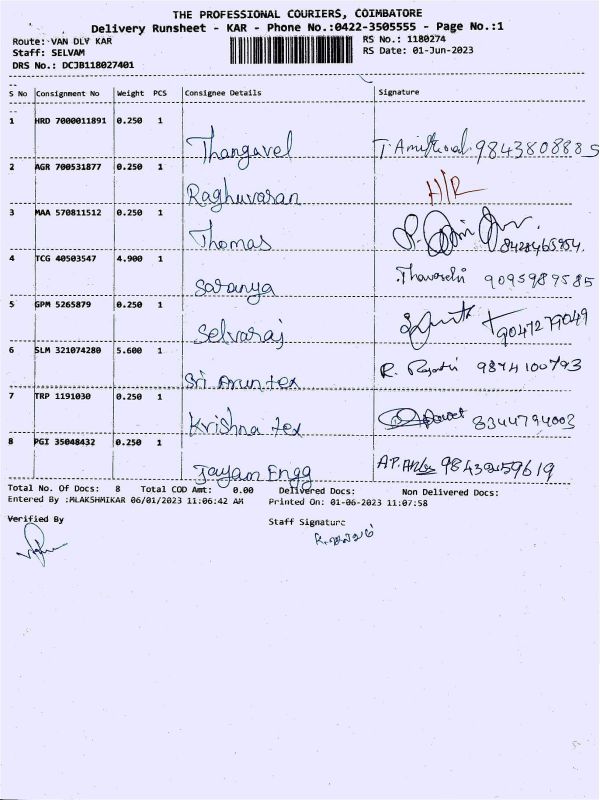 THE PROFESSIONAL COURIERS, COIMBATORE
Delivery Runsheet - KAR - Phone No.:0422-3505555 - Page No.:1
Route: VAN DLV KAR RS No.: 1180274
Staff: SELVAM RS Date: 01-Jun-2023
DRS No.: DCJB118027401
S No Consignment No Weight PCS Consignee Details Signature
1 HRD 7000011891 0.250 1
Thangavel 9843808885
2 AGR 700531877 0.250 1
Raghuvaran H/R
3 MAA 570811512 0.250 1
Thomas
4 TCG 40503547 4.900 1
Saranya 9095989585
5 GPM 5265879 0.250 1
Selvaraj 9047279049
6 SLM 321074280 5.600 1
Sri Arun tex R. 9874100793
7 TRP 1191030 0.250 1
Krishna tex 8344794003
8 PGI 35048432 0.250 1
Jayam Engg A.P.
Total No. Of Docs: 8 Total COD Amt: 0.00 Delivered Docs: Non Delivered Docs:
Entered By :MLAKSHMIKAR 06/01/2023 11:06:42 AM Printed On: 01-06-2023 11:07:58
Verified By Staff Signature